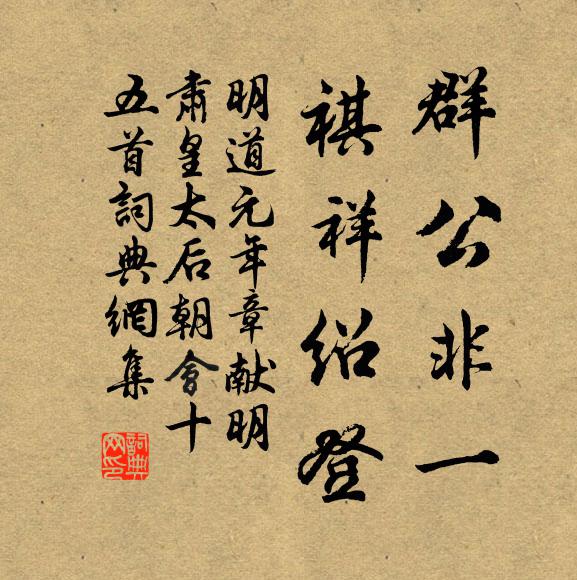 群公非一
祺祥绍登
明道元年章献明
肃皇太后朝會十
五首詞典網集
詞典网印